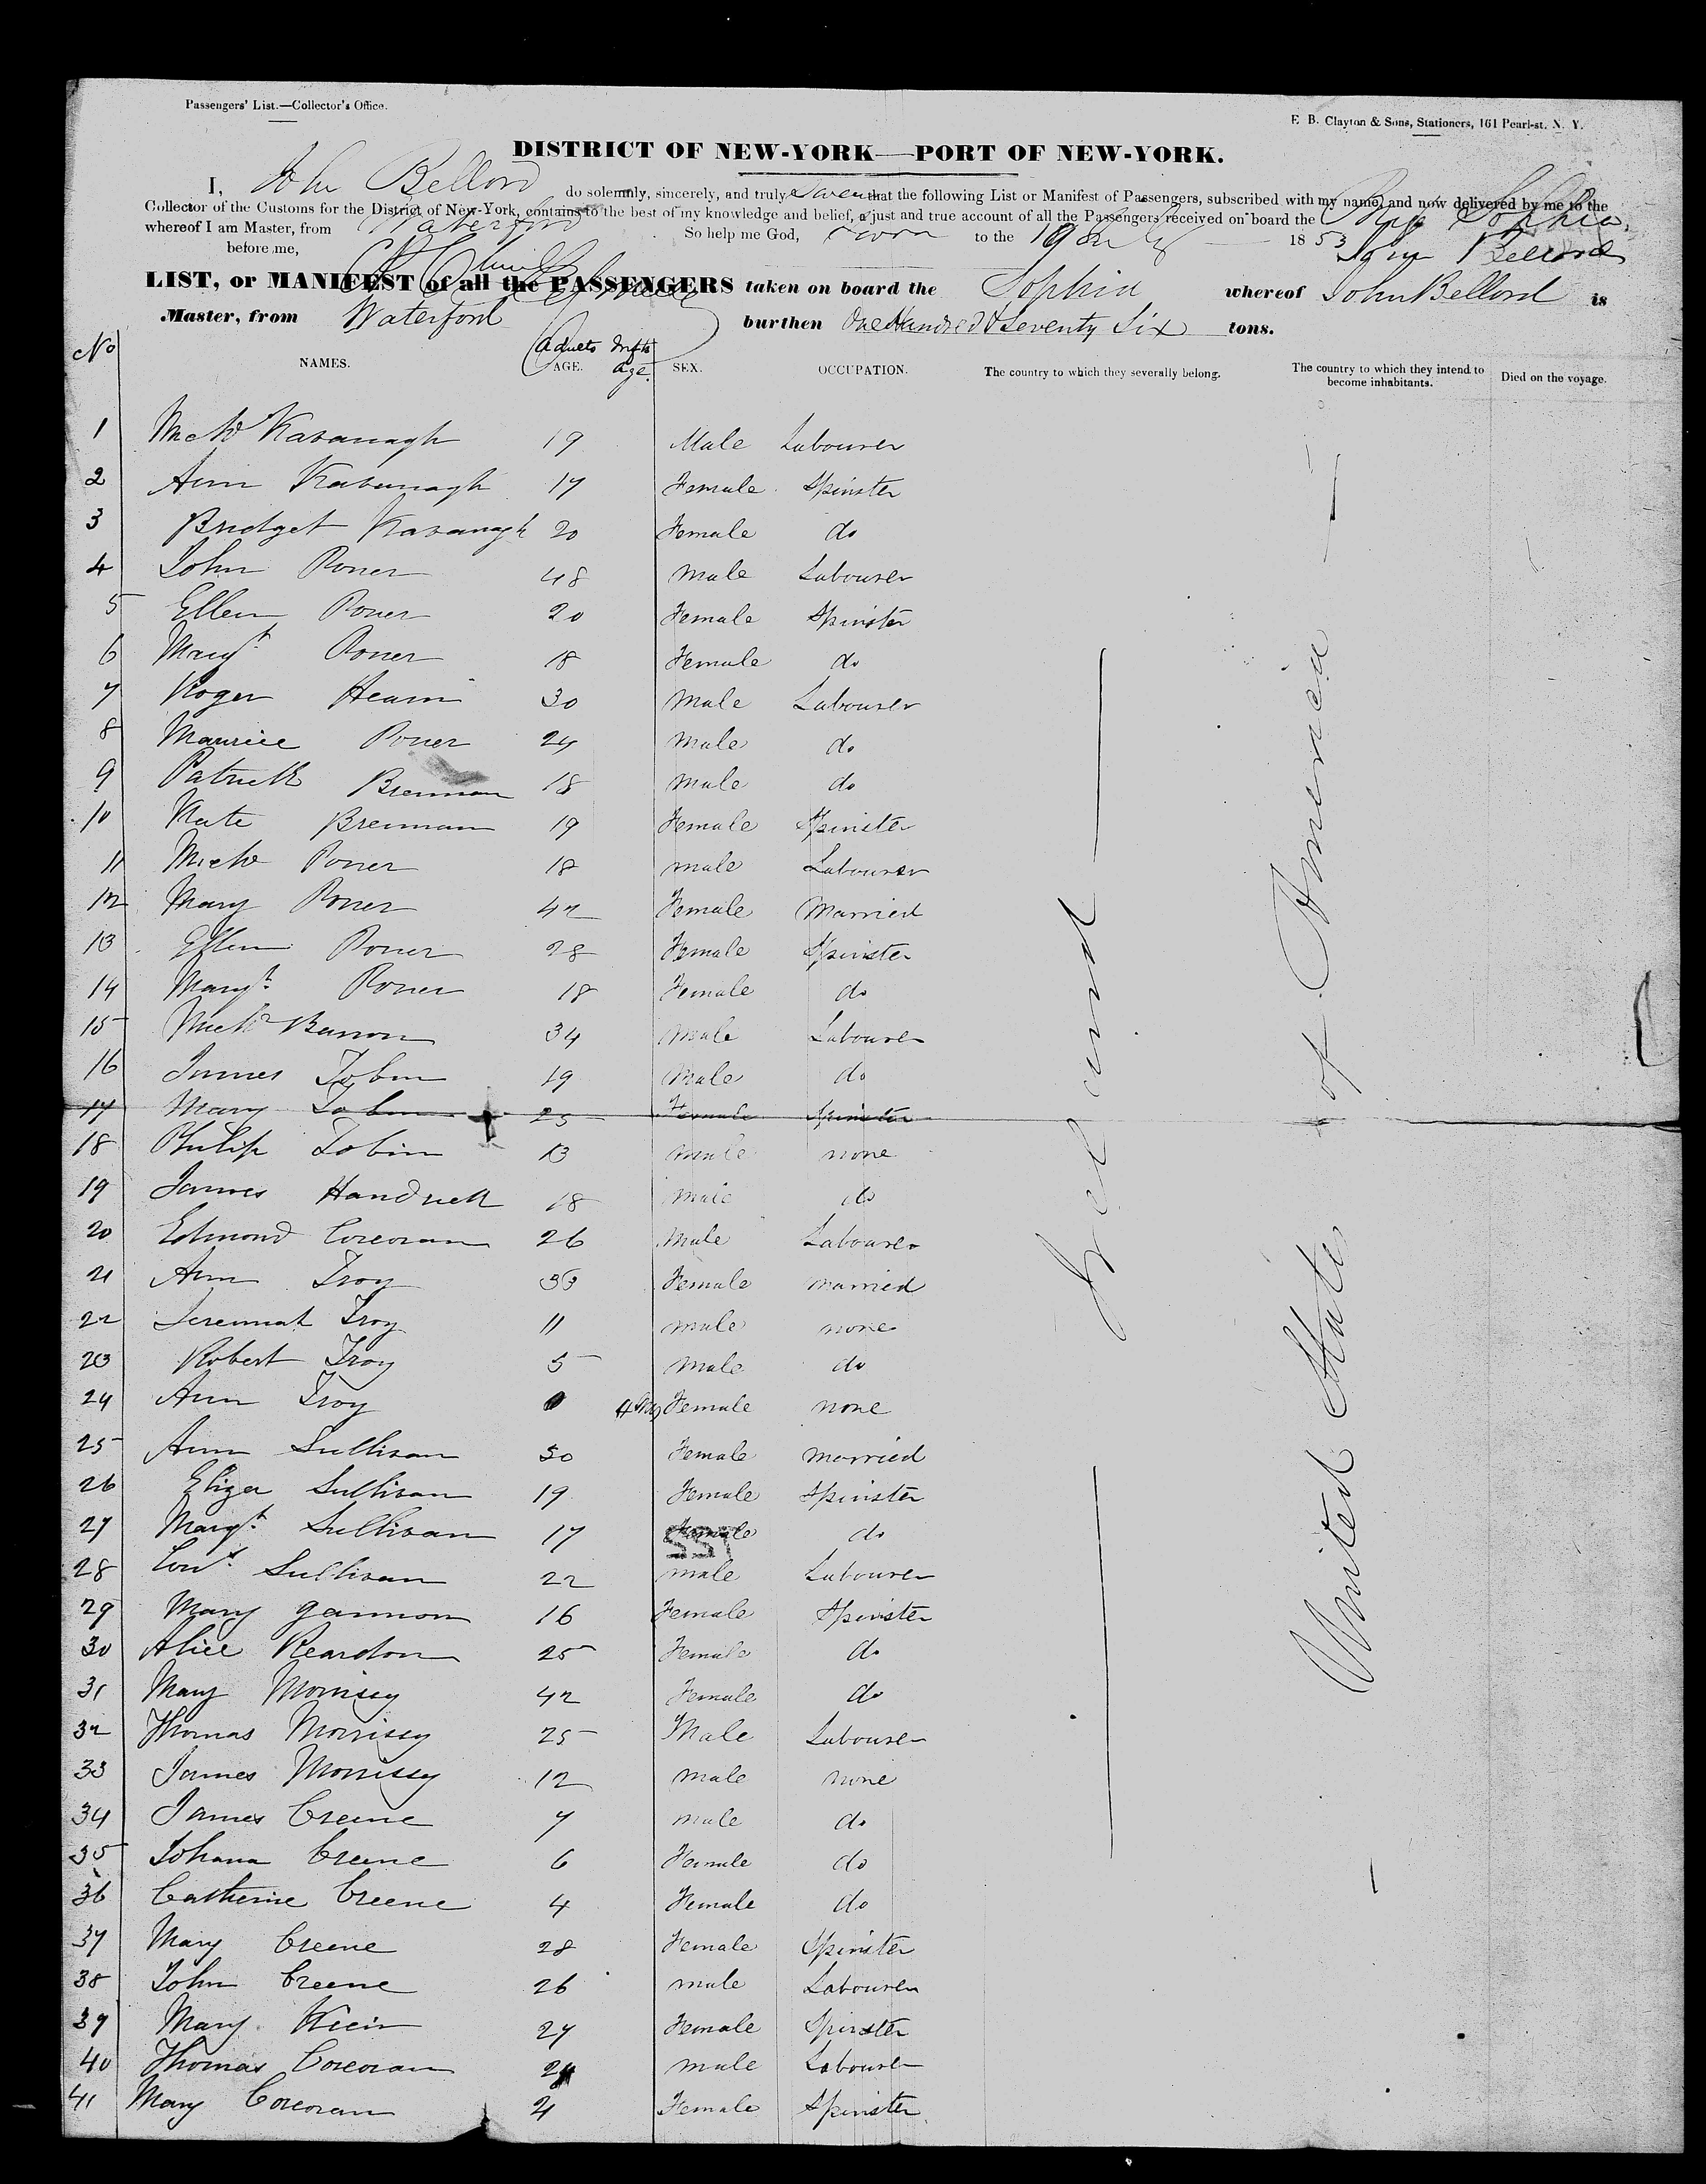 Passengers' List.—Collector's Office.
E. B. Clayton & Sons, Stationers, 161 Pearl-st. N. Y.
DISTRICT OF NEW-YORK—PORT OF NEW-YORK.
I, John Bellord do solemnly, sincerely, and truly swear that the following List or Manifest of Passengers, subscribed with my name, and now delivered by me to the
Collector of the Customs for the District of New-York, contains to the best of my knowledge and belief, a just and true account of all the Passengers received on board the Brig Sophia
whereof I am Master, from Waterford So help me God, Sworn to the 19 1853 John Bellord
before me,
LIST, or MANIFEST of all the PASSENGERS taken on board the Sophia whereof John Bellord is
Master, from Waterford burthen One Hundred & Seventy Six tons.
No NAMES. Adults AGE. Infts Age. SEX. OCCUPATION. The country to which they severally belong. The country to which they intend to become inhabitants. Died on the voyage.
1 Michl Kavanagh 19 Male Labourer
2 Ann Kavanagh 17 Female Spinster
3 Bridget Kavanagh 20 Female do
4 John Power 48 Male Labourer
5 Ellen Power 20 Female Spinster
6 Margt Power 18 Female do
7 Roger Hearn 30 Male Labourer
8 Maurice Power 24 Male do
9 Patrick Brennan 18 Male do
10 Kate Brennan 19 Female Spinster
11 Michl Power 18 male Labourer
12 Mary Power 42 Female Married
13 Ellen Power 28 Female Spinster
14 Margt Power 18 Female do
15 Michl Barron 34 Male Labourer
16 James Tobin 19 Male do
17 Mary Tobin 25 Female Spinster
18 Philip Tobin 13 male none
19 James Handrick 18 male do
20 Edmond Corcoran 26 Male Labourer
21 Ann Troy 33 Female married
22 Jeremiah Troy 11 male none
23 Robert Troy 5 Male do
24 Ann Troy Female none
25 Ann Sullivan 50 Female Married
26 Eliza Sullivan 19 Female Spinster
27 Margt Sullivan 17 Female do
28 Sullivan 22 male Labourer
29 Mary Gannon 16 Female Spinster
30 Alice Reardon 25 Female do
31 Mary Morrisey 42 Female do
32 Thomas Morrissy 25 Male Labourer
33 James Morrissy 12 male none
34 James Creene 7 male do
35 Johana Creene 6 Female do
36 Catherine Creene 4 Female do
37 Mary Creene 28 Female Spinster
38 John Creene 26 male Labourer
39 Mary 27 Female Spinster
40 Thomas Corcoran male Labourer
41 Mary Corcoran 21 Female Spinster
Ireland
United State of America